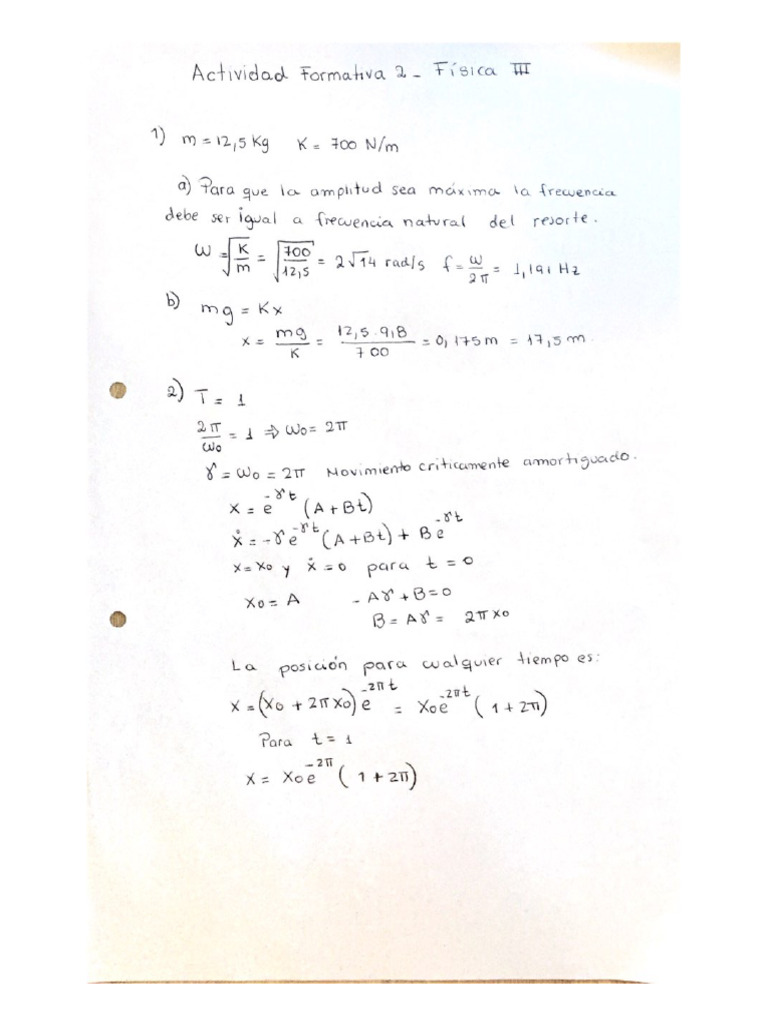 Actividad Formativa 2 - Física III
1) m = 12,5 Kg K = 700 N/m
a) Para que la amplitud sea máxima la frecuencia
debe ser igual a frecuencia natural del resorte.
W = √(K/m) = √(700/12,5) = 2√14 rad/s f = ω/2π = 1,191 Hz
b) mg = Kx
x = mg/K = 12,5 . 9,8/700 = 0,175 m = 17,5 m.
2) T = 1
2π/ω₀ = 1 ⇒ ω₀ = 2π
γ = ω₀ = 2π Movimiento criticamente amortiguado.
x = e^(-γt) (A + Bt)
ẋ = -γe^(-γt) (A + Bt) + Be^(-γt)
x = x₀ y ẋ = 0 para t = 0
x₀ = A - Aγ + B = 0
B = Aγ = 2π x₀
La posición para cualquier tiempo es:
x = (x₀ + 2π x₀) e^(-2πt) = x₀e^(-2πt) (1 + 2π)
Para t = 1
x = x₀e^(-2π) (1 + 2π)